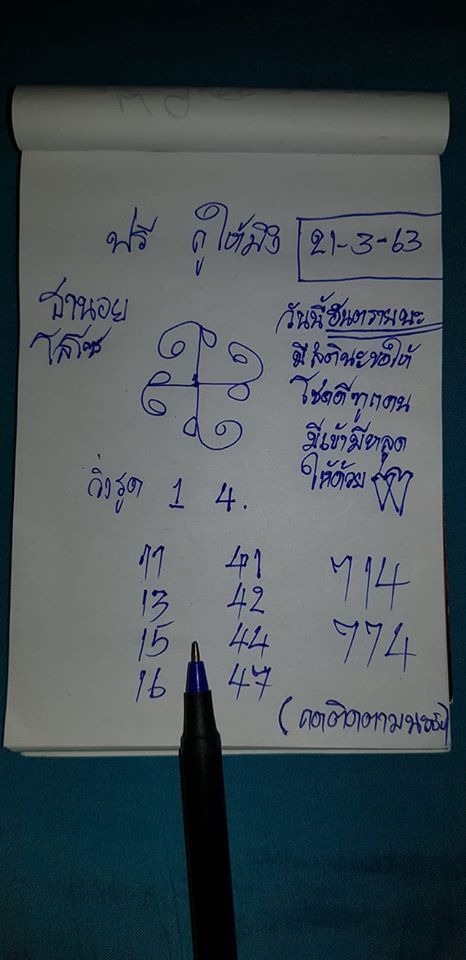 ฟรี กูให้มึง 21-3-63
ฮานอย
วันนี้อันตรายนะ
มีสตินะขอให้
โชคดีทุกคน
มีเข้ามีหลุด
ให้ด้วย
วิ่งรูด 1 4.
11 41 714
13 42
15 44 774
16 47
(กดติดตามนะ